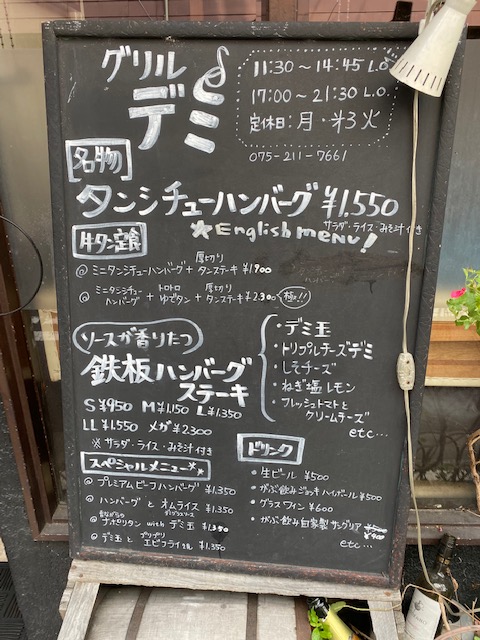 グリル
デミ
11:30～14:45 L.O.
17:00～21:30 L.O.
定休日：月・第3火
075-211-7661
名物
タンシチューハンバーグ ¥1,550
サラダ・ライス・みそ汁付き
★English menu!
牛タン定食
@ ミニタンシチューハンバーグ + 厚切りタンステーキ ¥1,900
@ ミニタンシチューハンバーグ + トロトロゆでタン + 厚切りタンステーキ ¥2,300 極!!
ソースが香りたつ
鉄板ハンバーグ
ステーキ
S ¥950 M ¥1,150 L ¥1,350
LL ¥1,550 メガ ¥2,300
※サラダ・ライス・みそ汁付き
・デミ玉
・トリプルチーズデミ
・しそチーズ
・ねぎ塩レモン
・フレッシュトマトと
クリームチーズ
etc...
スペシャルメニュー**
@ プレミアムビーフハンバーグ ¥1,350
@ ハンバーグ と オムライス ¥1,350
デミグラスソース
@ 昔ながらのナポリタン with デミ玉 ¥1,350
@ デミ玉 と プリプリエビフライ2尾 ¥1,350
ドリンク
・生ビール ¥500
・がぶ飲みジョッキハイボール ¥500
・グラスワイン ¥600
・がぶ飲み自家製サングリア
¥900
etc...